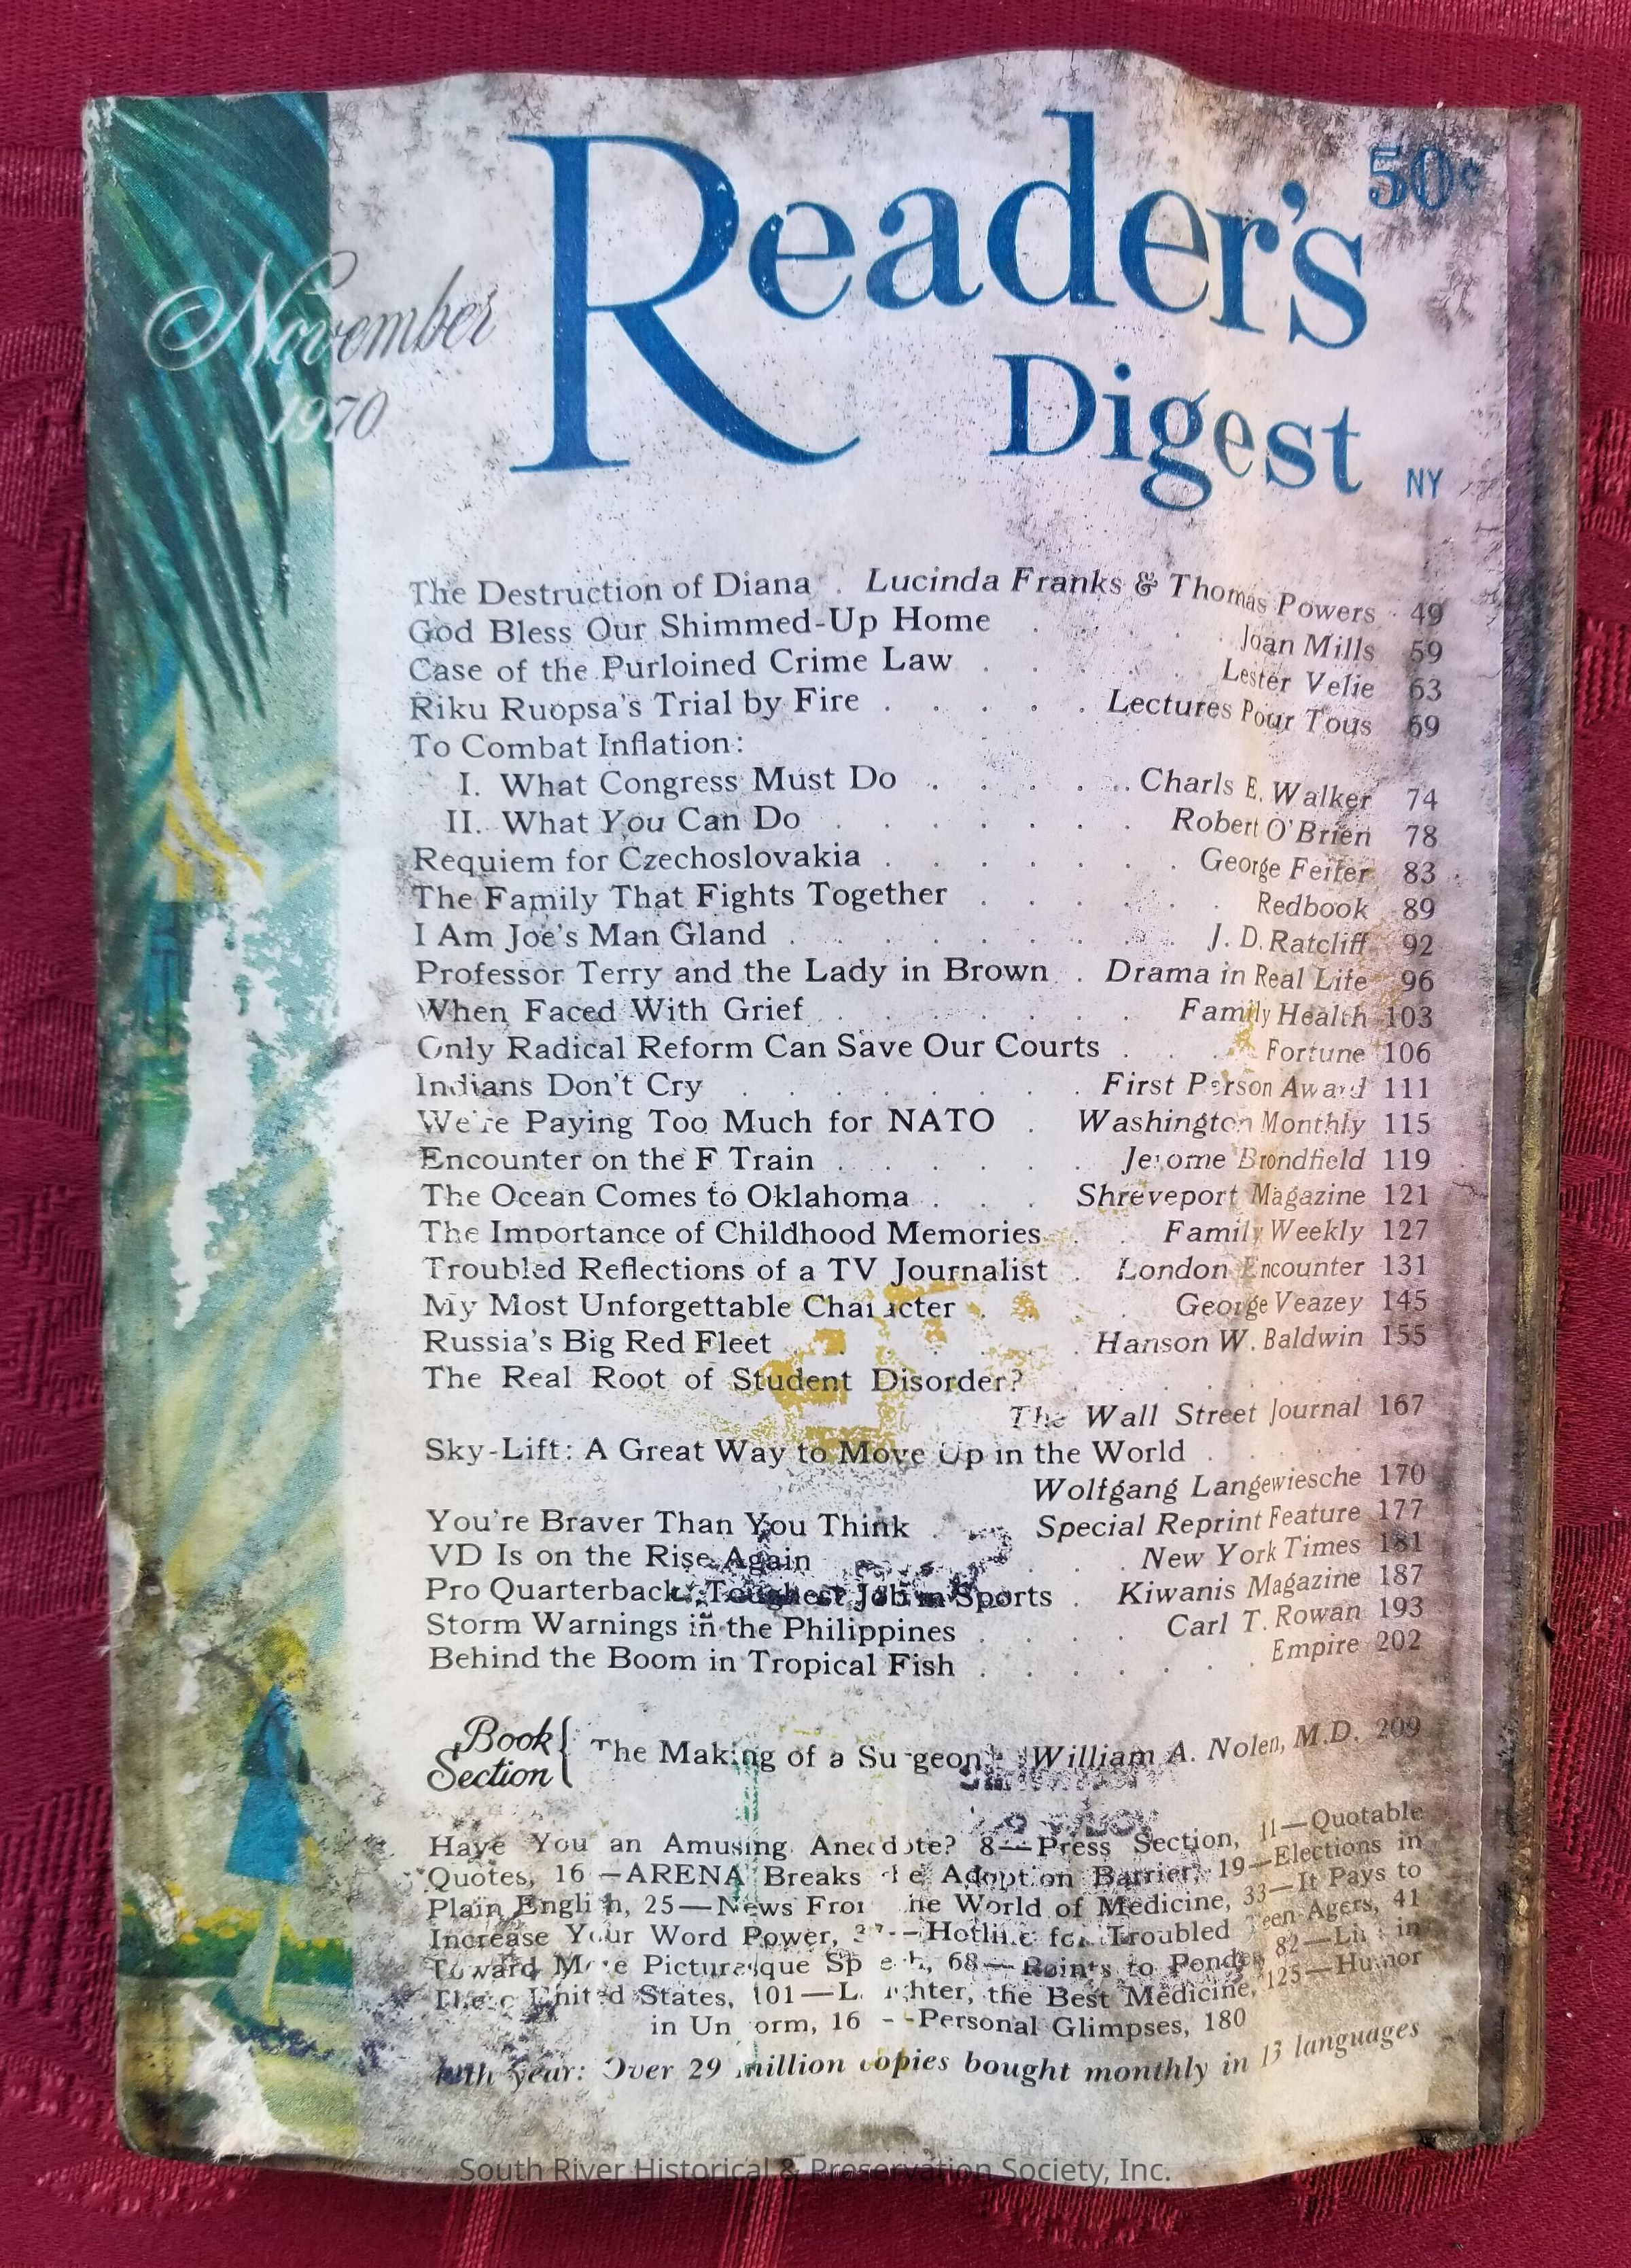 50¢
Reader's
Digest
NY
November
1970
The Destruction of Diana . Lucinda Franks & Thomas Powers . 49
God Bless Our Shimmed-Up Home . . . . Joan Mills 59
Case of the Purloined Crime Law . . . . Lester Velie 63
Riku Ruopsa's Trial by Fire . . . . Lectures Pour Tous 69
To Combat Inflation:
I. What Congress Must Do . . . . . Charls E. Walker 74
II. What You Can Do . . . . . Robert O'Brien 78
Requiem for Czechoslovakia . . . . . George Feifer 83
The Family That Fights Together . . . . . Redbook 89
I Am Joe's Man Gland . . . . . . J. D. Ratcliff 92
Professor Terry and the Lady in Brown . Drama in Real Life 96
When Faced With Grief . . . . . Family Health 103
Only Radical Reform Can Save Our Courts . . . Fortune 106
Indians Don't Cry . . . . . First Person Award 111
We're Paying Too Much for NATO . Washington Monthly 115
Encounter on the F Train . . . . Jerome Brondfield 119
The Ocean Comes to Oklahoma . . . Shreveport Magazine 121
The Importance of Childhood Memories . . Family Weekly 127
Troubled Reflections of a TV Journalist . London Encounter 131
My Most Unforgettable Character . . . George Veazey 145
Russia's Big Red Fleet . . . . . Hanson W. Baldwin 155
The Real Root of Student Disorder? . . . . .
The Wall Street Journal 167
Sky-Lift: A Great Way to Move Up in the World . . .
Wolfgang Langewiesche 170
You're Braver Than You Think . Special Reprint Feature 177
VD Is on the Rise Again . . . . New York Times 181
Pro Quarterback: Toughest Job in Sports . Kiwanis Magazine 187
Storm Warnings in the Philippines . . . Carl T. Rowan 193
Behind the Boom in Tropical Fish . . . . . Empire 202
Book
Section { The Making of a Surgeon William A. Nolen, M.D. 209
Have You an Amusing Anecdote? 8—Press Section, 11—Quotable
Quotes, 16—ARENA Breaks the Adoption Barrier, 19—Elections in
Plain English, 25—News From the World of Medicine, 33—It Pays to
Increase Your Word Power, 37—Hotline for Troubled Teen-Agers, 41
Toward More Picturesque Speech, 68—Points to Ponder, 82—Life in
These United States, 101—Laughter, the Best Medicine, 125—Humor
in Uniform, 16 —Personal Glimpses, 180
year: Over 29 million copies bought monthly in 13 languages
South River Historical & Preservation Society, Inc.